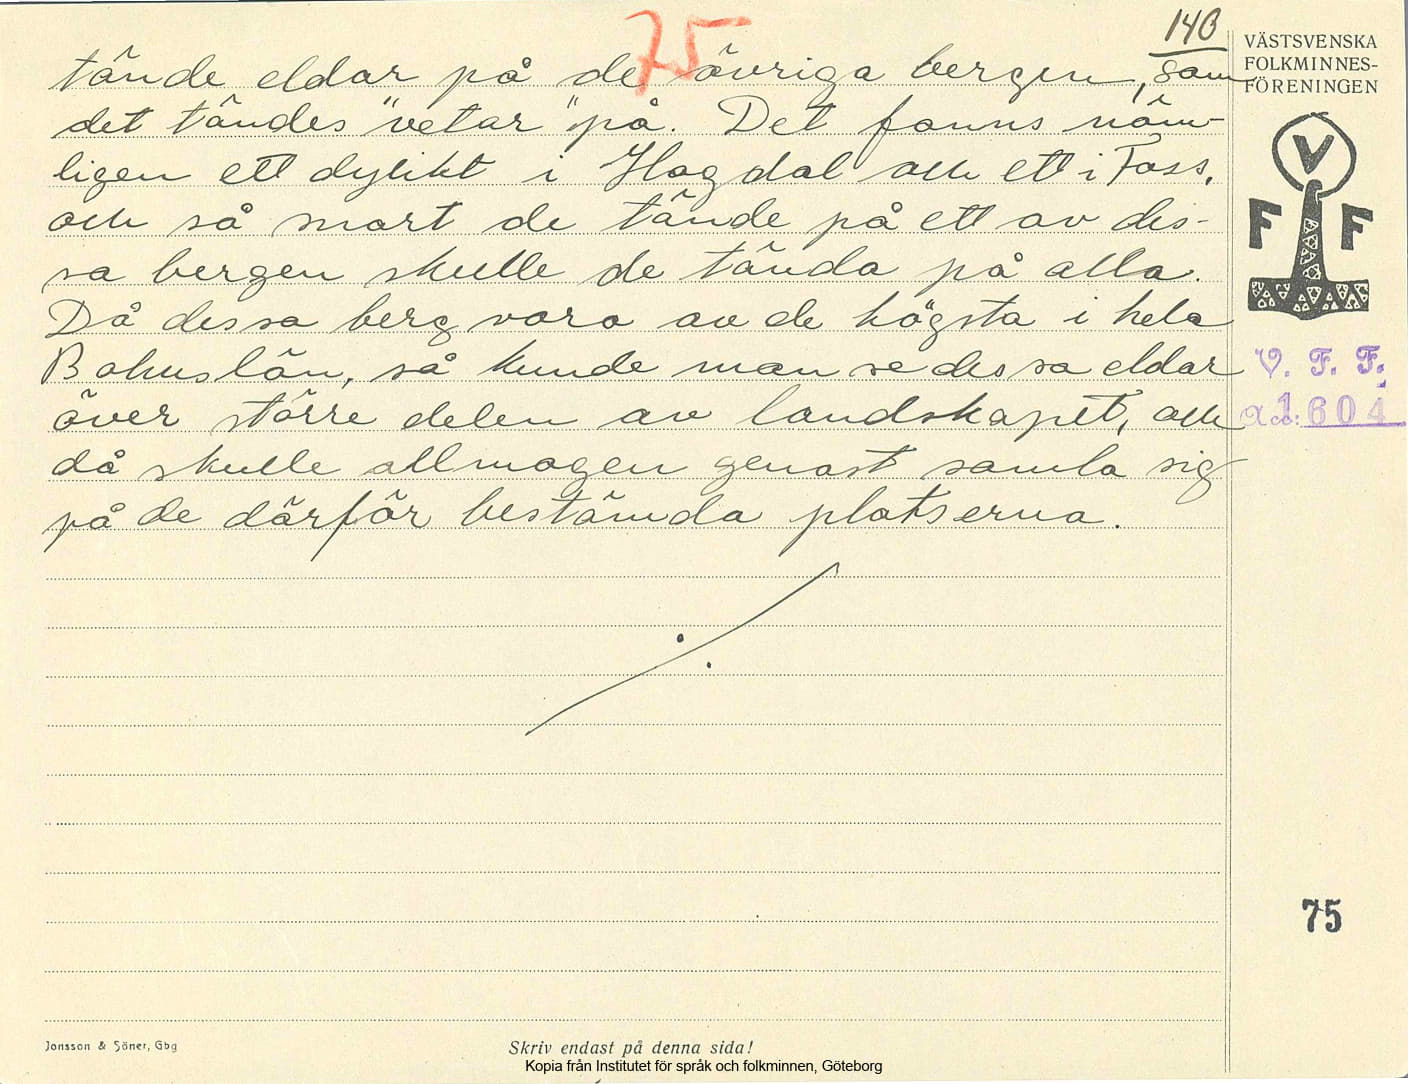 75
140
tände eldar på de övriga bergen, som
det tändes "vetar" på. Det fanns näm-
ligen ett dylikt i Hogdal och ett i Foss,
och så snart de tände på ett av des-
sa bergen skulle de tända på alla.
Då dessa berg voro av de högsta i hela
Bohuslän, så kunde man se dessa eldar
över större delen av landskapet, och
då skulle allmogen genast samla sig
på de därför bestämda platserna.
VÄSTSVENSKA
FOLKMINNES-
FÖRENINGEN
V
F F
V. F. F.
Acc: 1604
75
Jonsson & Söner, Gbg
Skriv endast på denna sida!
Kopia från Institutet för språk och folkminnen, Göteborg